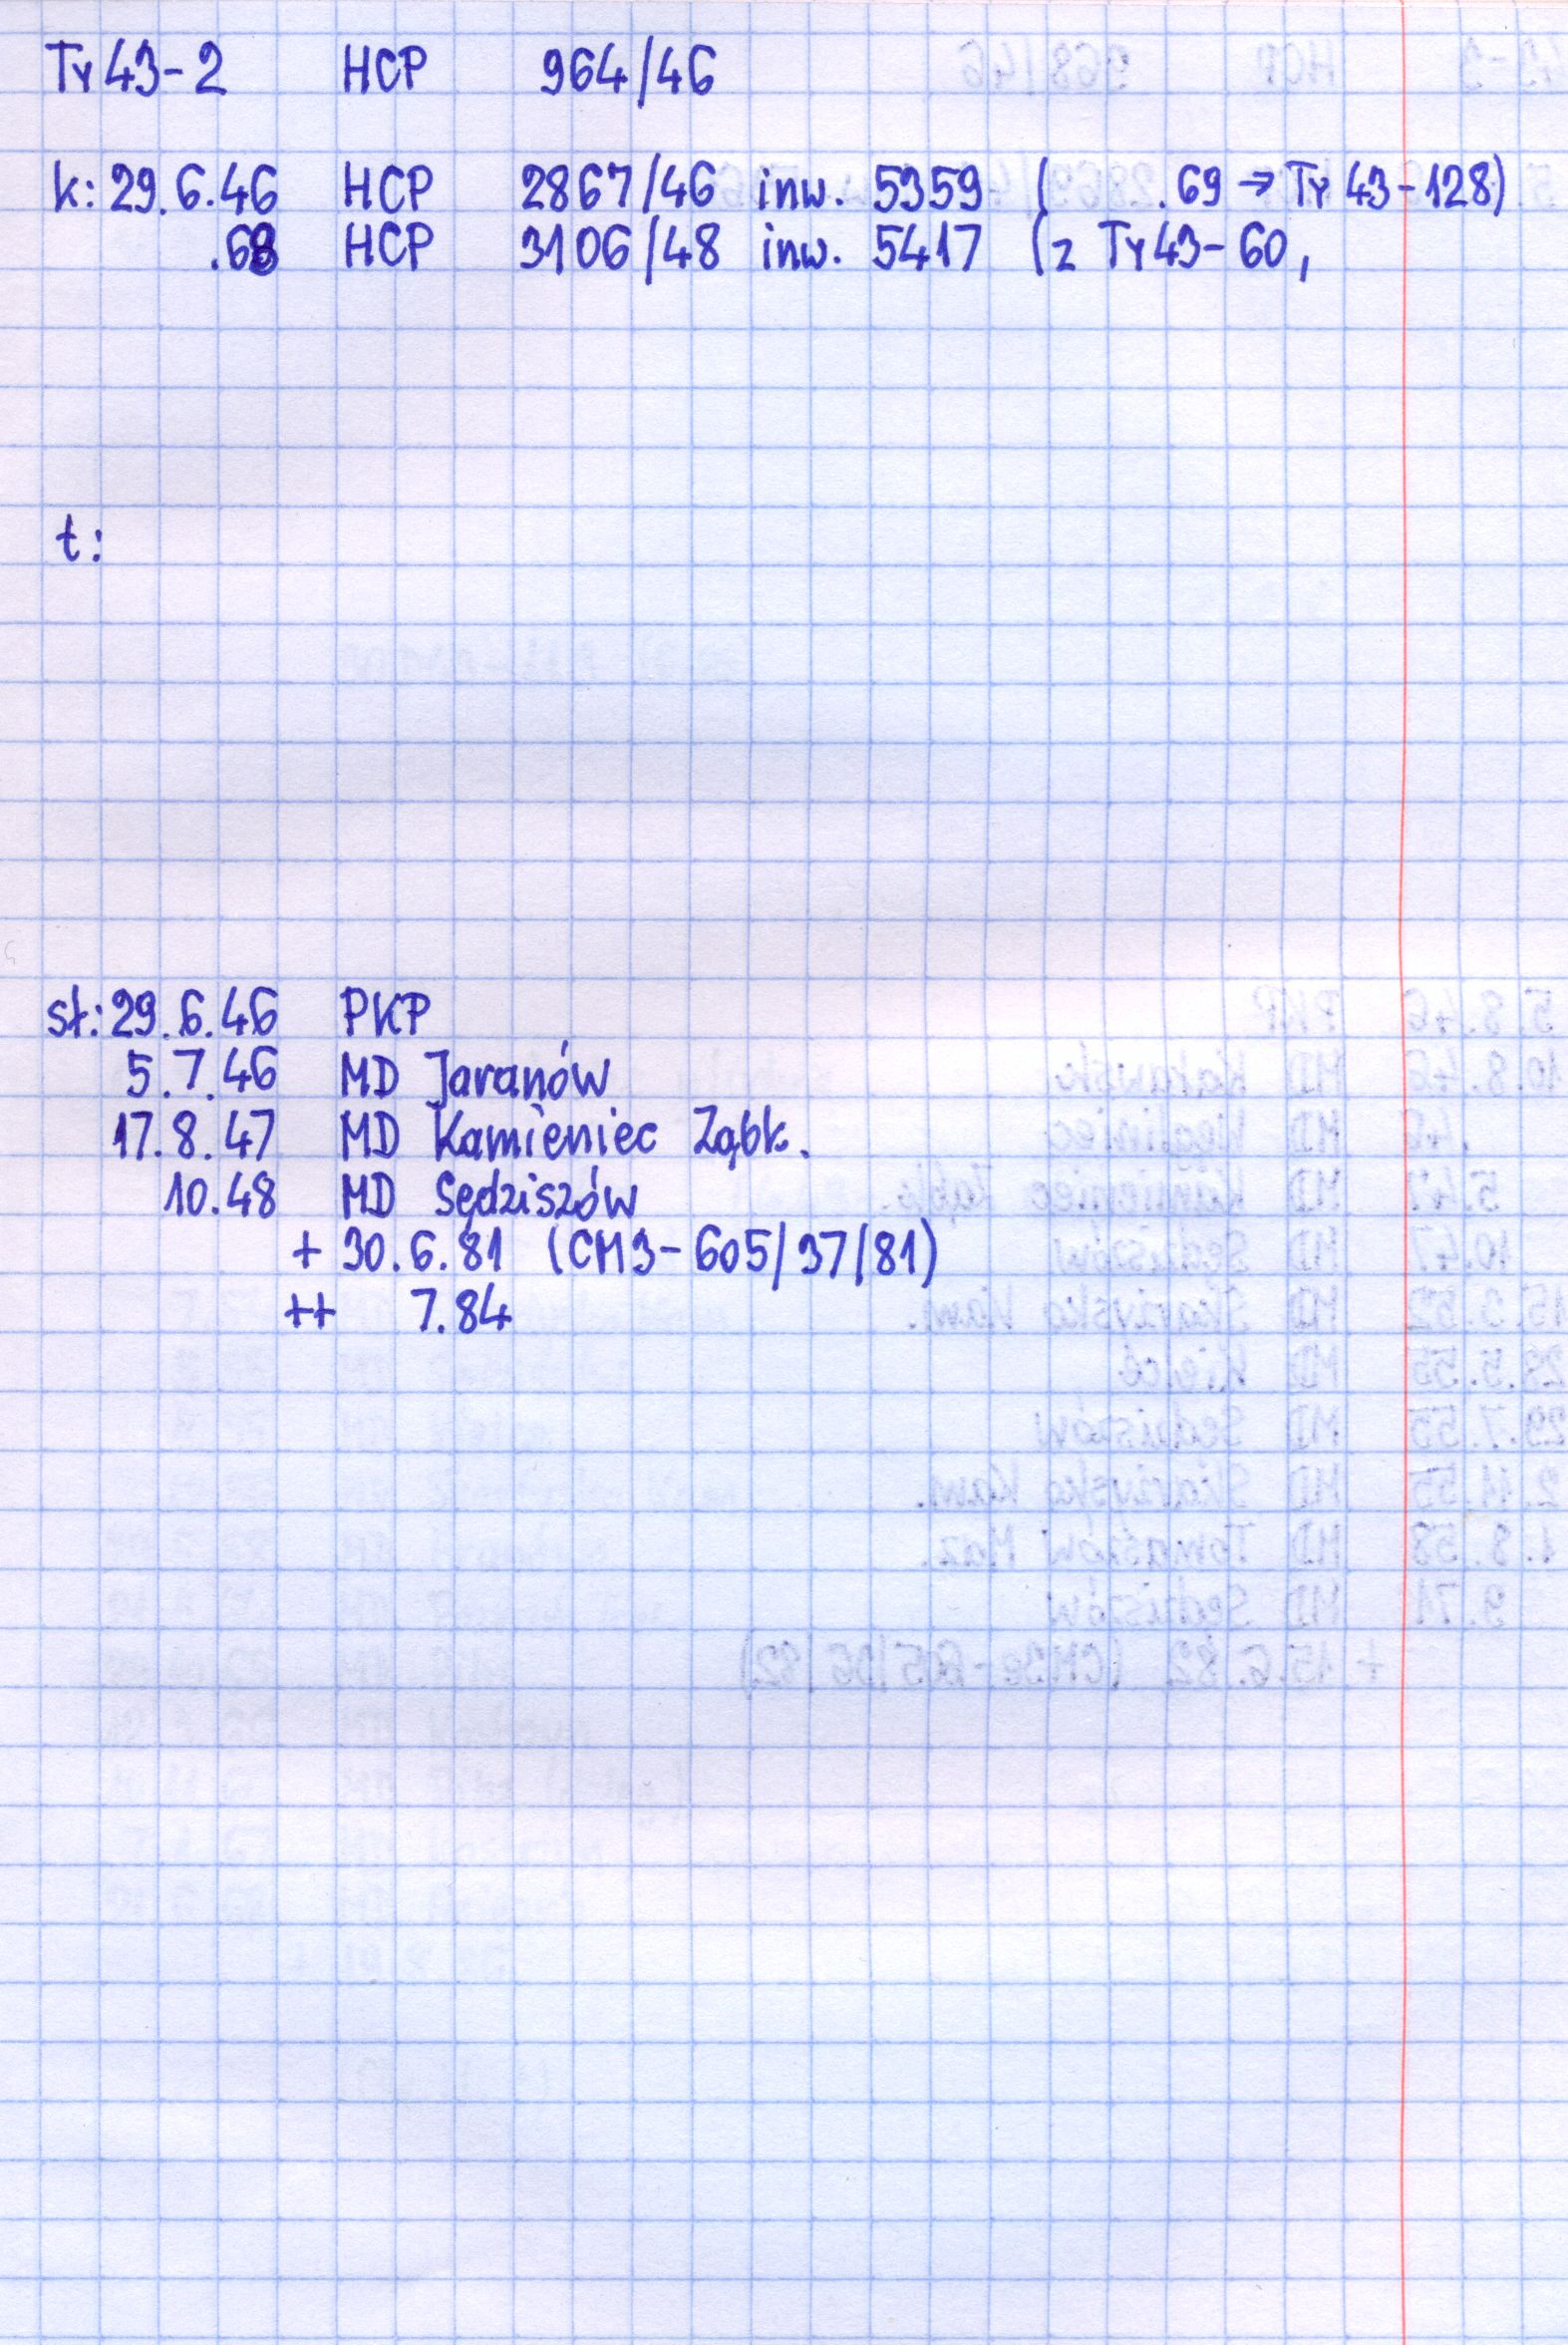 Ty43-2 HCP 964/46
k: 29.6.46 HCP 2867/46 inw. 5359 ( .69 → Ty43-128)
.68 HCP 3106/48 inw. 5417 (z Ty43-60,
t:
st: 29.6.46 PKP
5.7.46 MD Jaranów
17.8.47 MD Kamieniec Ząbk.
10.48 MD Sędziszów
+ 30.6.81 (CM3-605/37/81)
++ 7.84